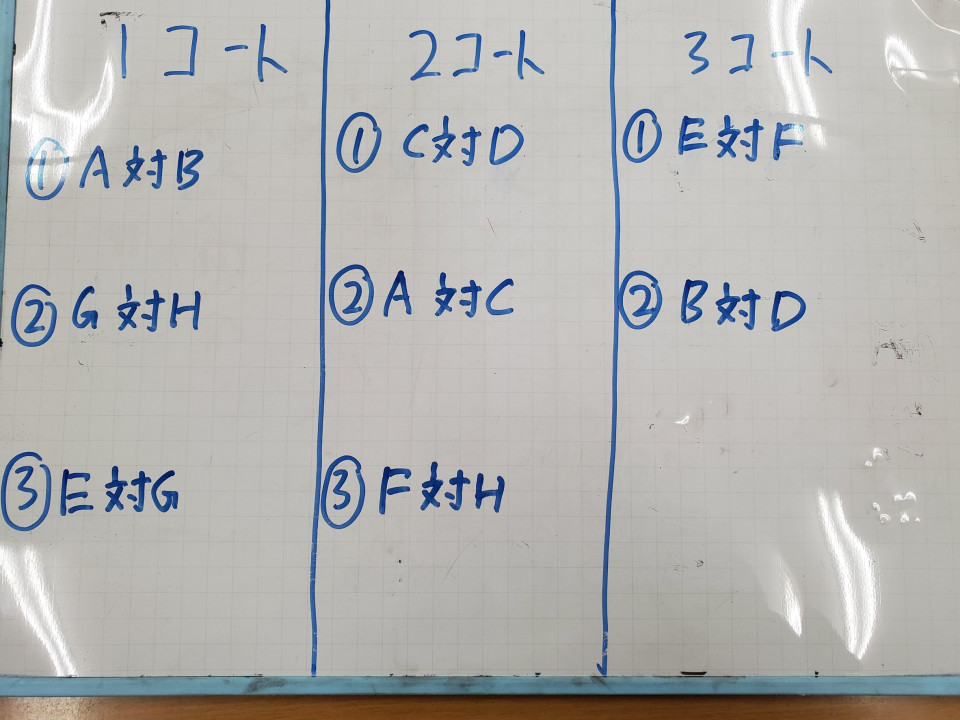 1コート
①A対B
②G対H
③E対G
2コート
①C対D
②A対C
③F対H
3コート
①E対F
②B対D